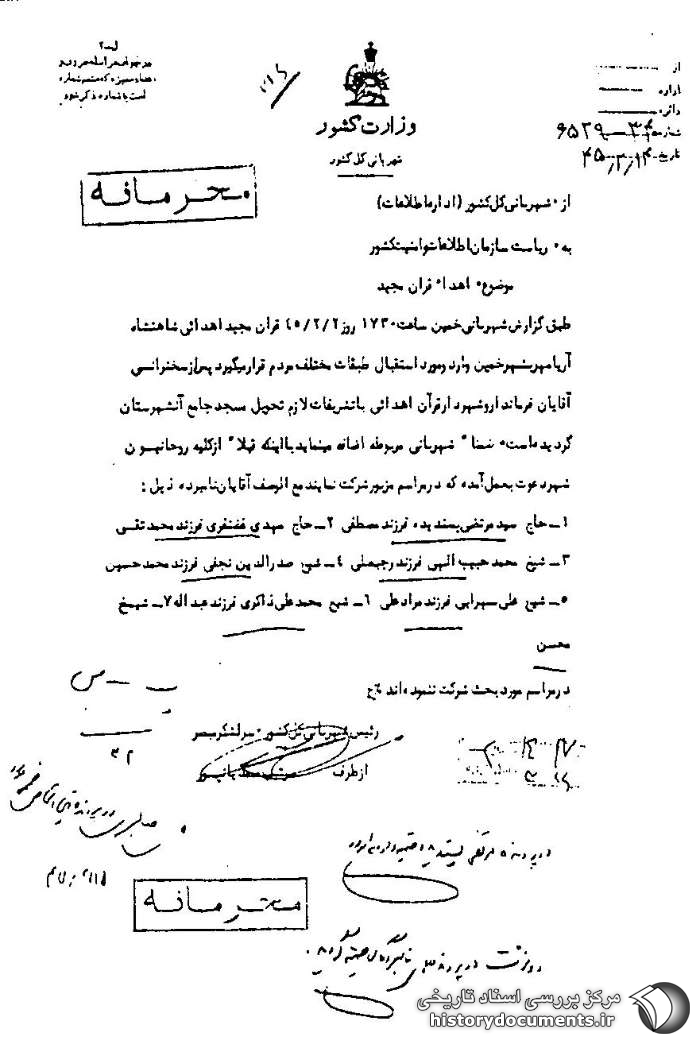 از
اداره
دائره
شماره ۳۴-۶۵۲۹
تاریخ ۴۵/۲/۱۴
در جواب مراسله حروف و
است با شماره ذکر شود
وزارت کشور
شهربانی کل کشور
محرمانه
از: شهربانی کل کشور (اداره اطلاعات)
به: ریاست سازمان اطلاعات و امنیت کشور
موضوع: اهداء قرآن مجید
طبق گزارش شهربانی خمین ساعت ۱۷۳۰ روز ۴۵/۲/۲ قرآن مجید اهدائی شاهنشاه
آریامهر بشهر خمین وارد و مورد استقبال طبقات مختلف مردم قرار میگیرد پس از سخنرانی
آقایان فرماندار و شهردار قرآن اهدائی با تشریفات لازم تحویل مسجد جامع آنشهرستان
گردیده است. ضمناً شهربانی مربوطه اضافه مینماید با اینکه قبلاً از کلیه روحانیون
شهر دعوت بعمل آمده که در مراسم مزبور شرکت نمایند مع الوصف آقایان نامبرده ذیل:
۱- حاج سید مرتضی پسندیده فرزند مصطفی ۲- حاج مهدی غضنفری فرزند محمد تقی
۳- شیخ محمد حبیب الهی فرزند رجبعلی ۴- شیخ صدرالدین نجفی فرزند محمد حسین
۵- شیخ علی سهرابی فرزند مراد علی ۶- شیخ محمد علی ذاکری فرزند عبداله ۷- شیخ
محسن
در مراسم مورد بحث شرکت ننموده اند
رئیس شهربانی کل کشور. سرلشگر مبصر
از طرف
محرمانه
مرکز بررسی اسناد تاریخی
historydocuments.ir